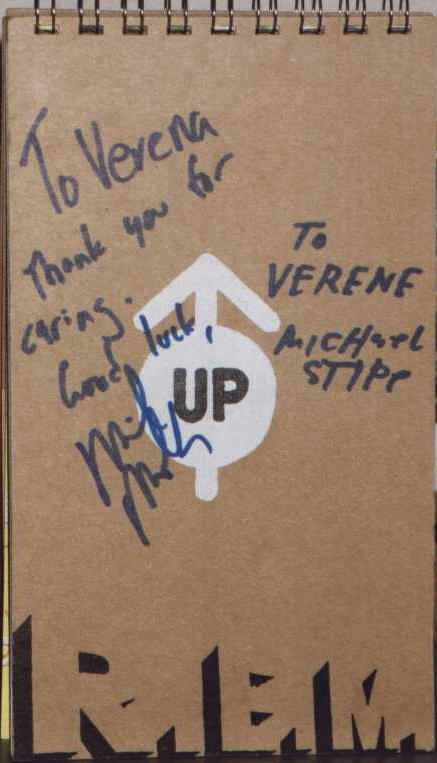 To Verena
Thank you for
caring.
Good luck,
To
VERENE
MICHAEL
STIPE
UP
R.E.M.